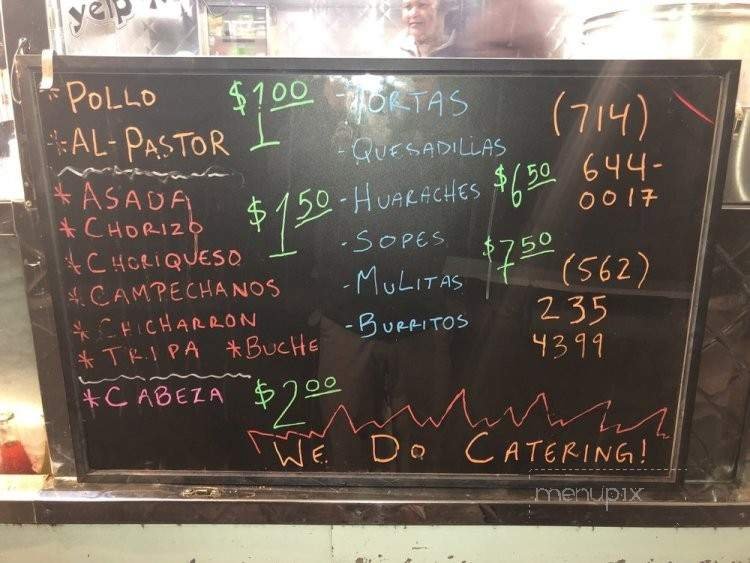 yelp
* POLLO $1.00
* AL-PASTOR
* ASADA $1.50
* CHORIZO
* CHORIQUESO
* CAMPECHANOS
* CHICHARRON
* TRIPA * BUCHE
* CABEZA $2.00
- TORTAS
- QUESADILLAS
- HUARACHES $6.50
- SOPES $7.50
- MULITAS
- BURRITOS
(714)
644-
0017
(562)
235
4399
WE DO CATERING!
menupix